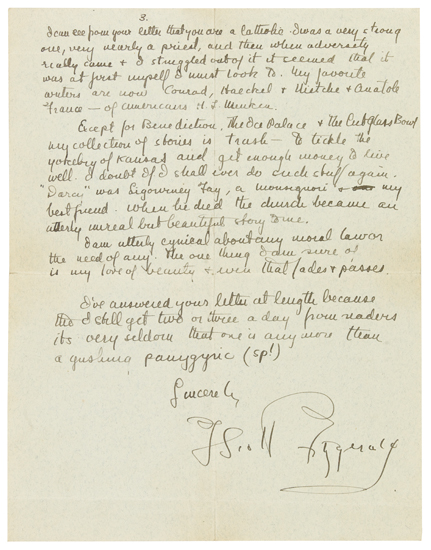 3.
I can see from your letter that you are a Catholic. I was a very strong
one, very nearly a priest, and then when adversity
really came & I struggled out of it it seemed that it
was at first myself I must look to. My favorite
writers are now Conrad, Haeckel & Nietche & Anatole
France — of americans H. L. Menken.
Except for Benediction, The Ice Palace & The Cut Glass Bowl
my collection of stories is trash — to tickle the
yokelry of Kansas and get enough money to live
well. I doubt if I shall ever do such stuff again.
"Darcy" was Sigourney Fay, a monsignori & my
best friend. When he died the church became an
utterly unreal but beautiful story to me.
I am utterly cynical about any moral law or
the need of any. The one thing I am sure of
is my love of beauty & even that fades & passes.
I've answered your letter at length because
tho I still get two or three a day from readers
its very seldom that one is any more than
a gushing panygyric (sp!)
Sincerely
F Scott Fitzgerald